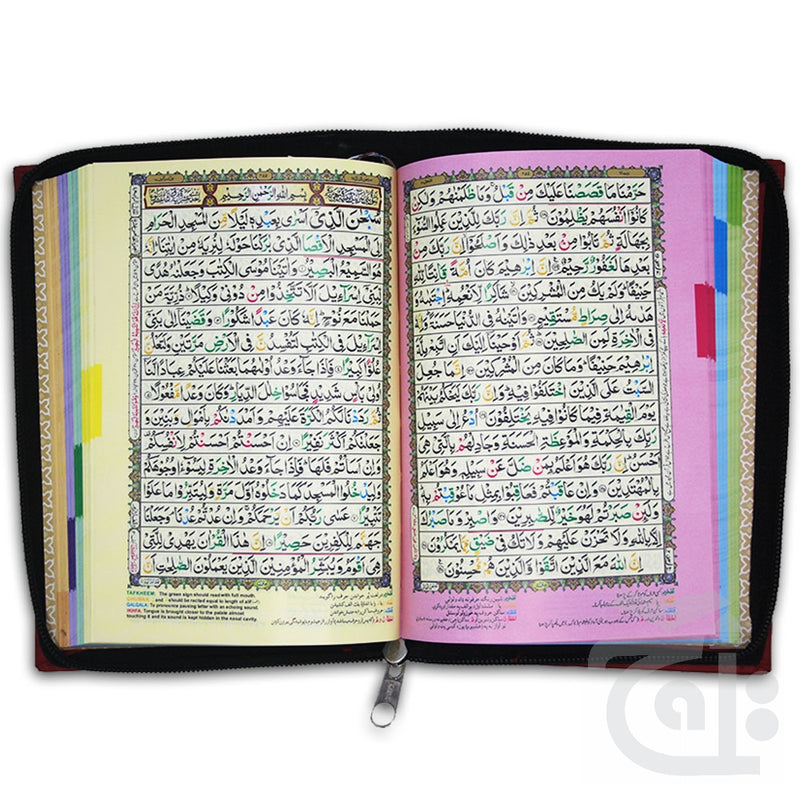 حَرَّمْنَا مَا قَصَصْنَا عَلَيْكَ مِنْ قَبْلُ وَمَا ظَلَمْنٰهُمْ وَلٰكِنْ
كَانُوْٓا اَنْفُسَهُمْ يَظْلِمُوْنَ ثُمَّ اِنَّ رَبَّكَ لِلَّذِيْنَ عَمِلُوا السُّوْٓءَ
بِجَهَالَةٍ ثُمَّ تَابُوْا مِنْۢ بَعْدِ ذٰلِكَ وَاَصْلَحُوْٓا اِنَّ رَبَّكَ مِنْۢ
بَعْدِهَا لَغَفُوْرٌ رَّحِيْمٌ اِنَّ اِبْرٰهِيْمَ كَانَ اُمَّةً قَانِتًا لِّلّٰهِ
حَنِيْفًا وَلَمْ يَكُ مِنَ الْمُشْرِكِيْنَ شَاكِرًا لِّاَنْعُمِهٖ اِجْتَبٰىهُ وَ
هَدٰىهُ اِلٰى صِرَاطٍ مُّسْتَقِيْمٍ وَاٰتَيْنٰهُ فِى الدُّنْيَا حَسَنَةً وَاِنَّهٗ
فِى الْاٰخِرَةِ لَمِنَ الصّٰلِحِيْنَ ثُمَّ اَوْحَيْنَآ اِلَيْكَ اَنِ اتَّبِعْ مِلَّةَ
اِبْرٰهِيْمَ حَنِيْفًا وَمَا كَانَ مِنَ الْمُشْرِكِيْنَ اِنَّمَا جُعِلَ
السَّبْتُ عَلَى الَّذِيْنَ اخْتَلَفُوْا فِيْهِ وَاِنَّ رَبَّكَ لَيَحْكُمُ بَيْنَهُمْ
يَوْمَ الْقِيٰمَةِ فِيْمَا كَانُوْا فِيْهِ يَخْتَلِفُوْنَ اُدْعُ اِلٰى سَبِيْلِ
رَبِّكَ بِالْحِكْمَةِ وَالْمَوْعِظَةِ الْحَسَنَةِ وَجَادِلْهُمْ بِالَّتِيْ هِيَ
اَحْسَنُ اِنَّ رَبَّكَ هُوَ اَعْلَمُ بِمَنْ ضَلَّ عَنْ سَبِيْلِهٖ وَهُوَ اَعْلَمُ
بِالْمُهْتَدِيْنَ وَاِنْ عَاقَبْتُمْ فَعَاقِبُوْا بِمِثْلِ مَا عُوْقِبْتُمْ بِهٖ
وَلَئِنْ صَبَرْتُمْ لَهُوَ خَيْرٌ لِّلصّٰبِرِيْنَ وَاصْبِرْ وَمَا صَبْرُكَ
اِلَّا بِاللّٰهِ وَلَا تَحْزَنْ عَلَيْهِمْ وَلَا تَكُ فِيْ ضَيْقٍ مِّمَّا يَمْكُرُوْنَ
اِنَّ اللّٰهَ مَعَ الَّذِيْنَ اتَّقَوْا وَّالَّذِيْنَ هُمْ مُّحْسِنُوْنَ
بِسْمِ اللّٰهِ الرَّحْمٰنِ الرَّحِيْمِ
سُبْحٰنَ الَّذِيْٓ اَسْرٰى بِعَبْدِهٖ لَيْلًا مِّنَ الْمَسْجِدِ الْحَرَامِ
اِلَى الْمَسْجِدِ الْاَقْصَا الَّذِيْ بٰرَكْنَا حَوْلَهٗ لِنُرِيَهٗ مِنْ اٰيٰتِنَا اِنَّهٗ
هُوَ السَّمِيْعُ الْبَصِيْرُ وَاٰتَيْنَا مُوْسَى الْكِتٰبَ وَجَعَلْنٰهُ هُدًى
لِّبَنِيْٓ اِسْرَآءِيْلَ اَلَّا تَتَّخِذُوْا مِنْ دُوْنِيْ وَكِيْلًا ذُرِّيَّةَ مَنْ
حَمَلْنَا مَعَ نُوْحٍ اِنَّهٗ كَانَ عَبْدًا شَكُوْرًا وَقَضَيْنَآ اِلٰى بَنِيْٓ
اِسْرَآءِيْلَ فِى الْكِتٰبِ لَتُفْسِدُنَّ فِى الْاَرْضِ مَرَّتَيْنِ وَلَتَعْلُنَّ
عُلُوًّا كَبِيْرًا فَاِذَا جَآءَ وَعْدُ اُوْلٰىهُمَا بَعَثْنَا عَلَيْكُمْ عِبَادًا لَّنَآ
اُولِيْ بَاْسٍ شَدِيْدٍ فَجَاسُوْا خِلٰلَ الدِّيَارِ وَكَانَ وَعْدًا مَّفْعُوْلًا
ثُمَّ رَدَدْنَا لَكُمُ الْكَرَّةَ عَلَيْهِمْ وَاَمْدَدْنٰكُمْ بِاَمْوَالٍ وَّبَنِيْنَ وَ
جَعَلْنٰكُمْ اَكْثَرَ نَفِيْرًا اِنْ اَحْسَنْتُمْ اَحْسَنْتُمْ لِاَنْفُسِكُمْ
وَاِنْ اَسَاْتُمْ فَلَهَا فَاِذَا جَآءَ وَعْدُ الْاٰخِرَةِ لِيَسُوْٓءٗا وُجُوْهَكُمْ
وَلِيَدْخُلُوا الْمَسْجِدَ كَمَا دَخَلُوْهُ اَوَّلَ مَرَّةٍ وَّلِيُتَبِّرُوْا مَا عَلَوْا
تَتْبِيْرًا عَسٰى رَبُّكُمْ اَنْ يَّرْحَمَكُمْ وَاِنْ عُدْتُّمْ عُدْنَا وَجَعَلْنَا
جَهَنَّمَ لِلْكٰفِرِيْنَ حَصِيْرًا اِنَّ هٰذَا الْقُرْاٰنَ يَهْدِيْ لِلَّتِيْ
هِيَ اَقْوَمُ وَيُبَشِّرُ الْمُؤْمِنِيْنَ الَّذِيْنَ يَعْمَلُوْنَ الصّٰلِحٰتِ اَنَّ
TAFKHEEM: The green sign should read with full mouth.
and should be recited equal to length of alif
QALQALA: To pronounce pausing letter with an echoing sound.
IKHFA: Tongue is brought closer to the palate almost
touching it and its sound is kept hidden in the nasal cavity.